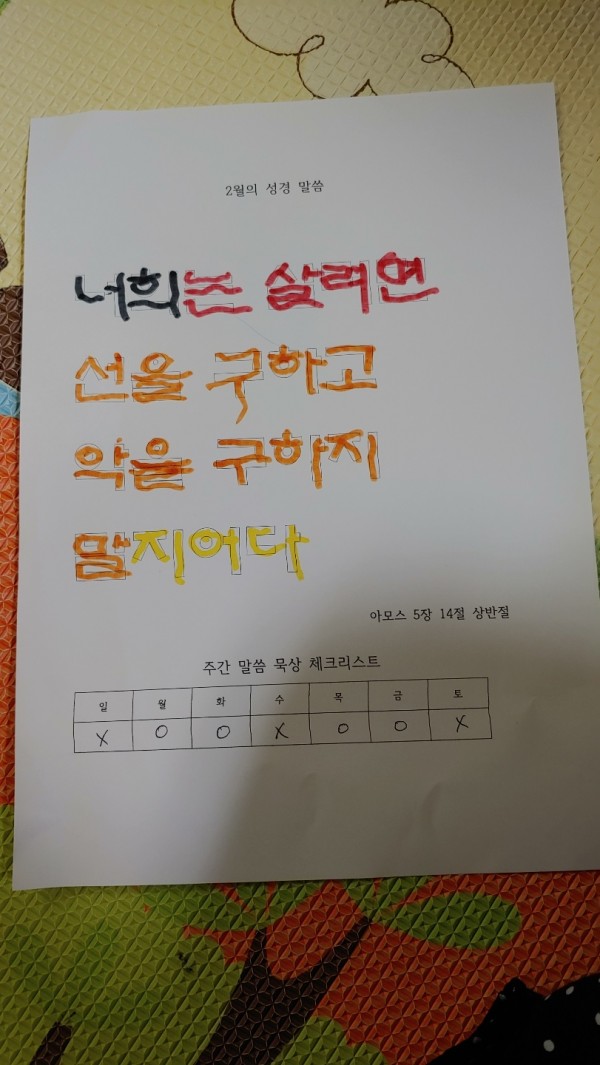 2월의 성경 말씀
너희는 살려면
선을 구하고
악을 구하지
말지어다
아모스 5장 14절 상반절
주간 말씀 묵상 체크리스트
일 월 화 수 목 금 토
X O O X O O X